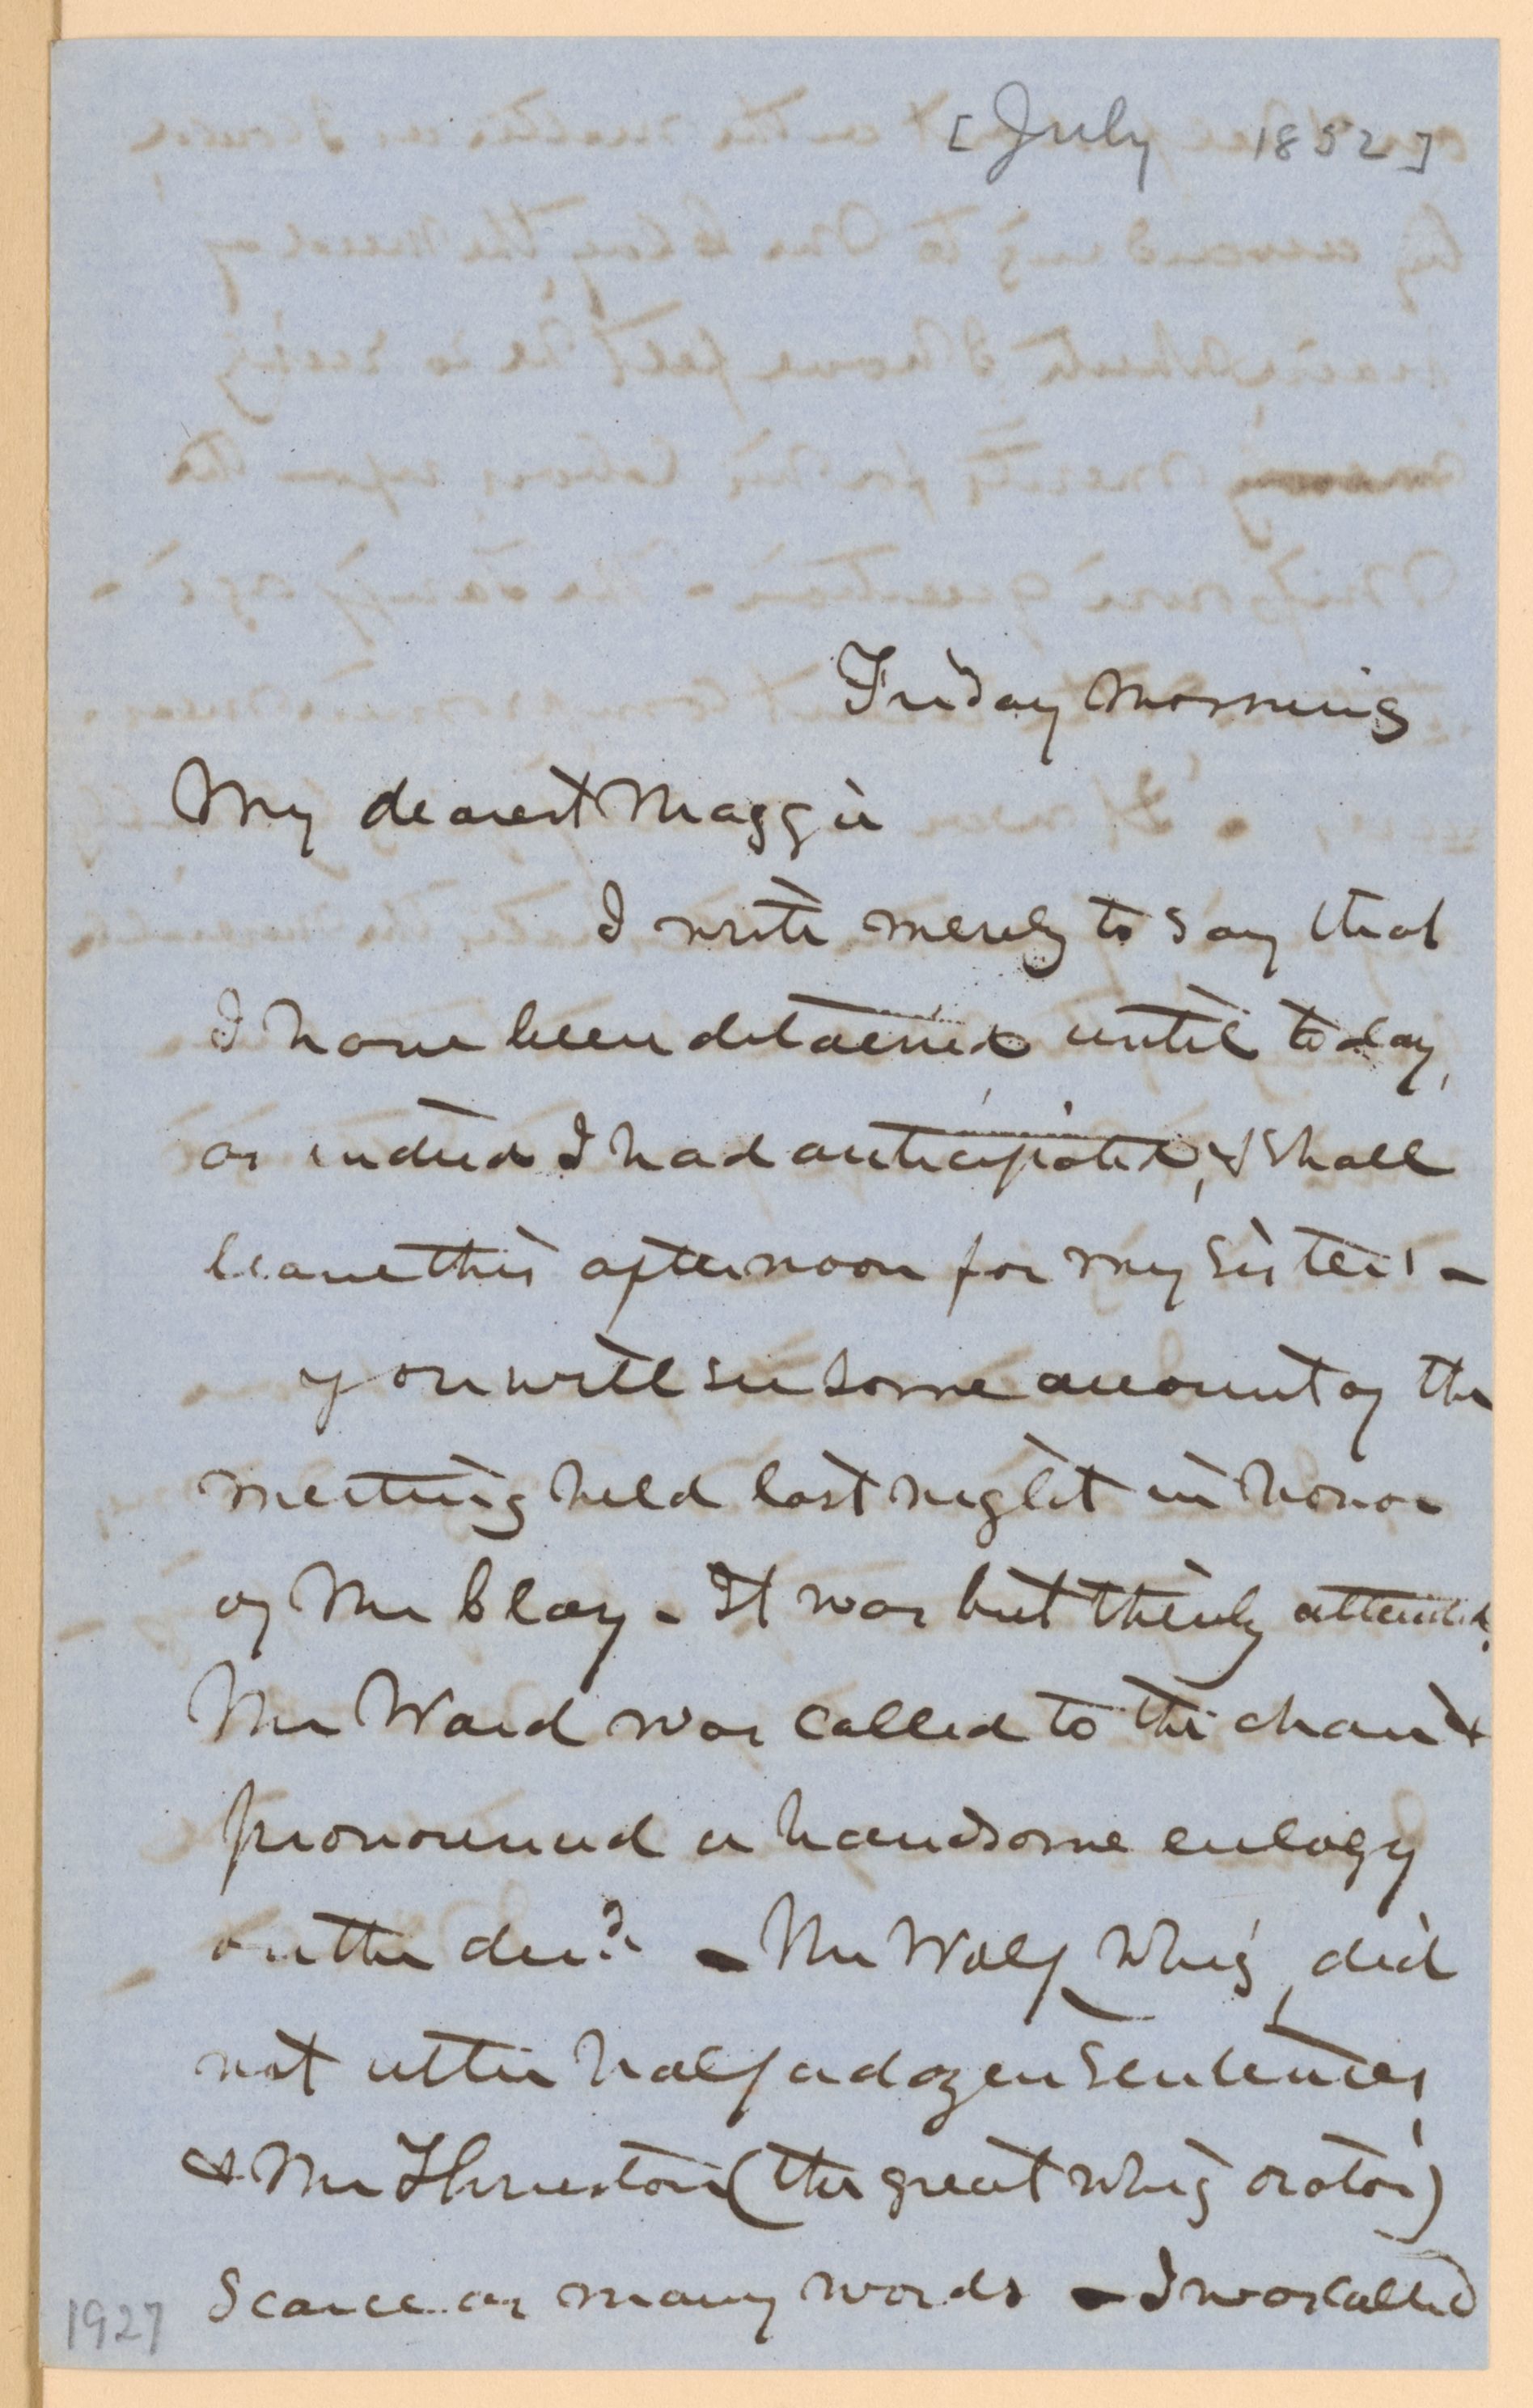 [July 1852]
Friday Morning
My dearest Maggie
I write merely to say that
I have been detained until today,
as indeed I had anticipated, & shall
leave this afternoon for my sister's -
you will see some account of the
meeting held last night in honor
of Mr Clay - It was but thinly attended.
Mr Ward was called to the chair &
pronounced a handsome eulogy
on the decd. - Mr Wolf, Whig, did
not utter half a dozen sentences,
& Mr Thruston (the great Whig orator)
scarce as many words - I was called
1927